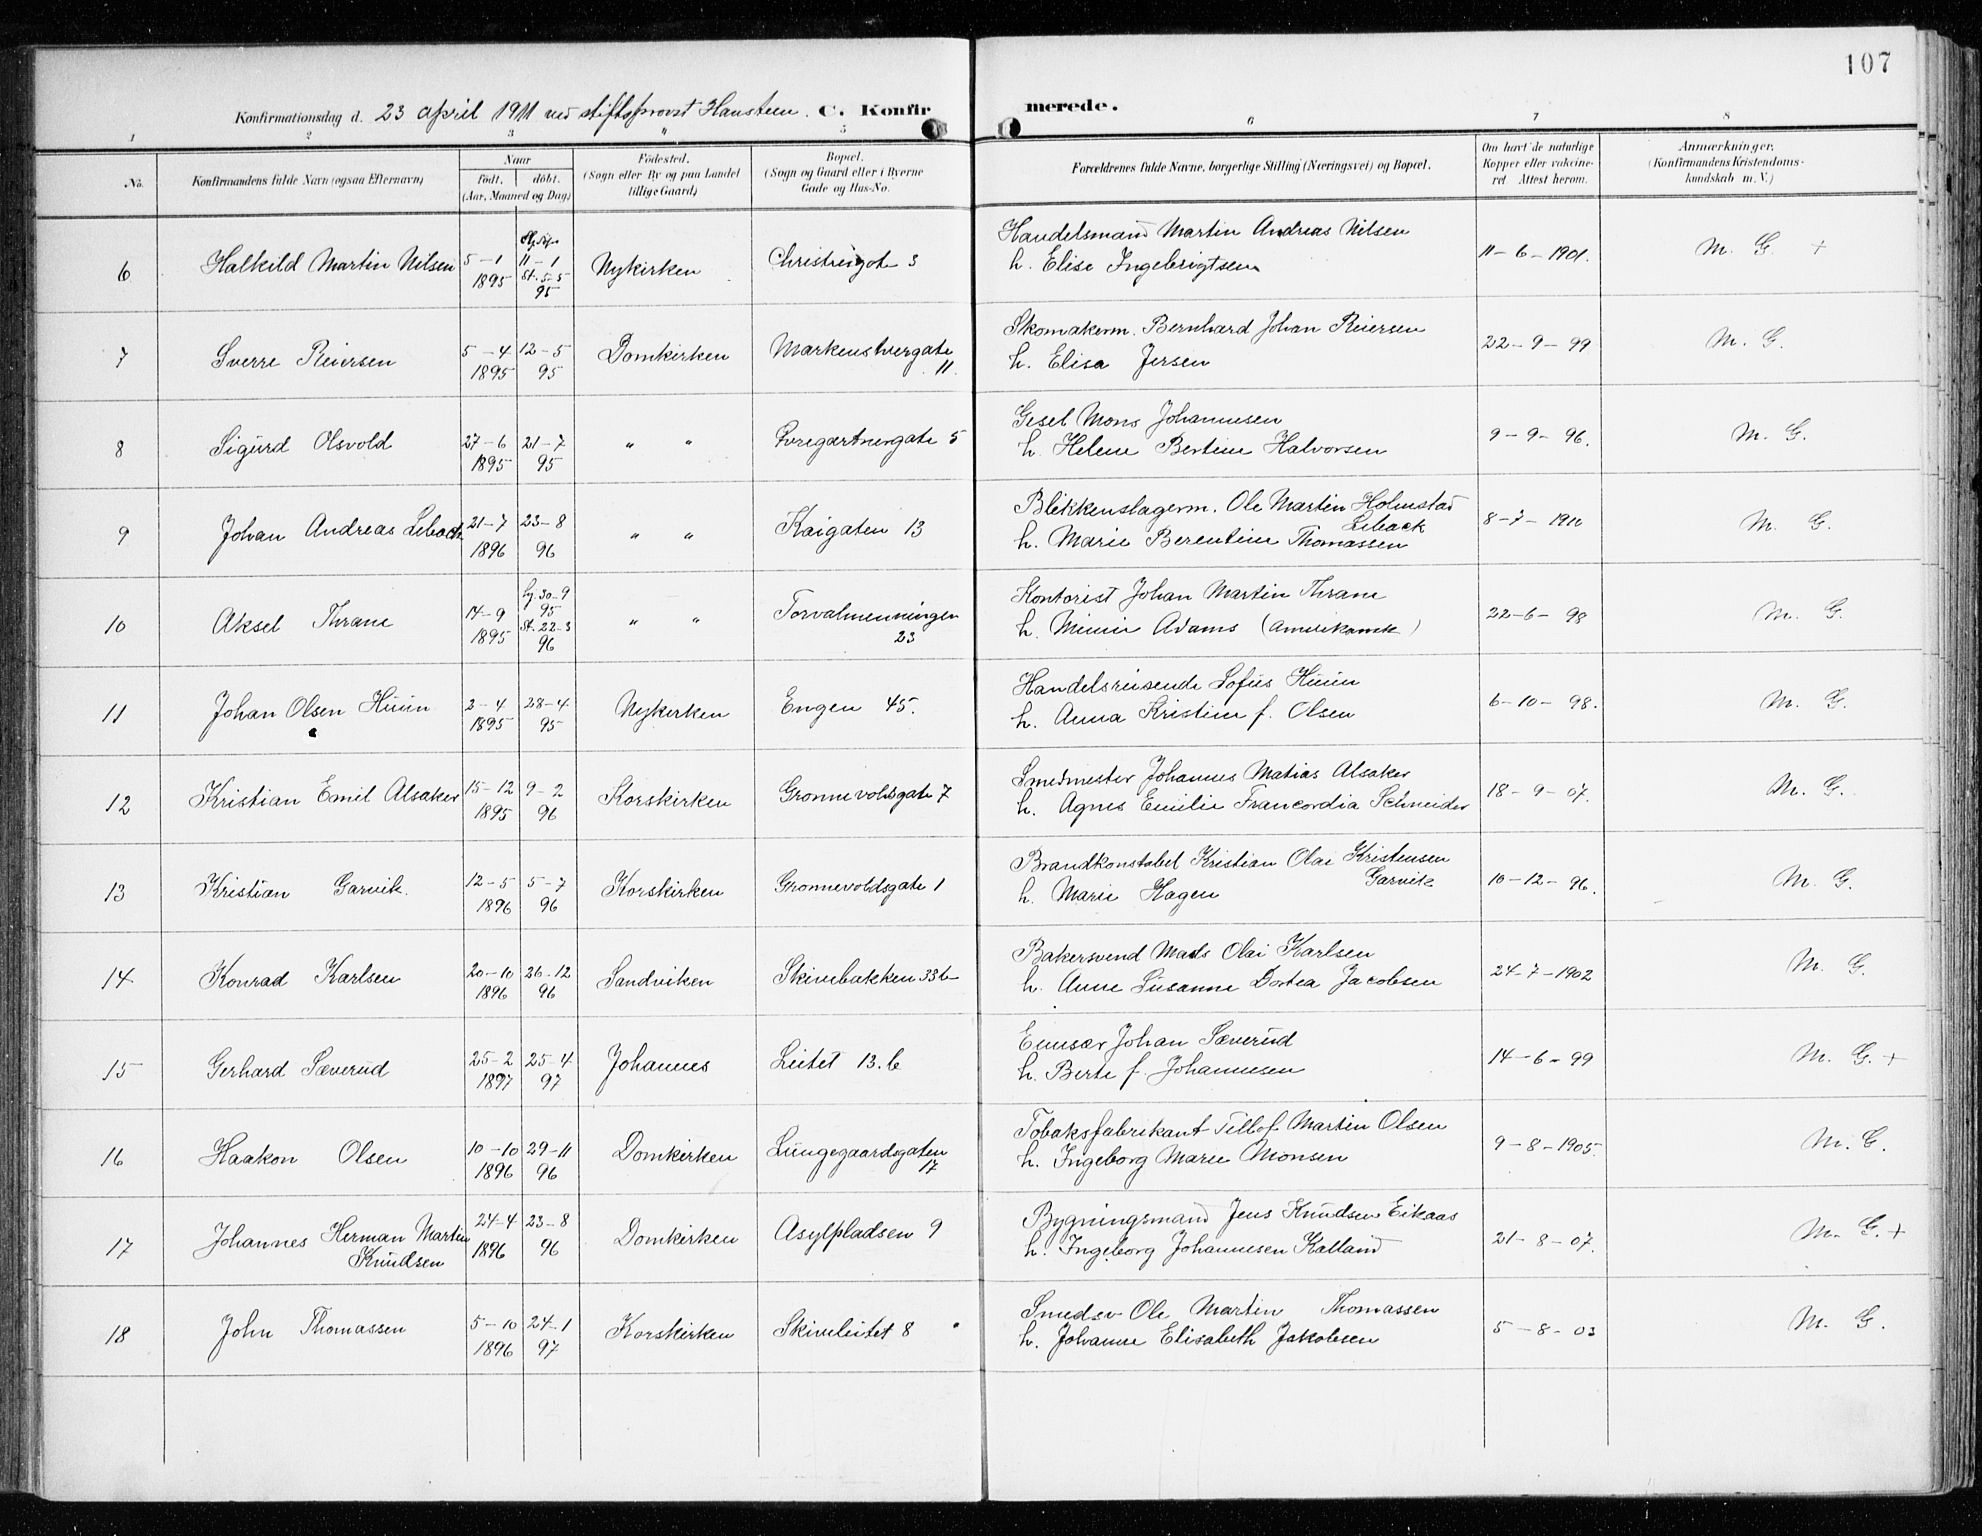 107
Konfirmationsdag d. 23 april 1911 ved stiftsprovst Hansteen. C. Konfirmerede.
1 2 3 " 5 6 7 8
No.
Konfirmandens fulde Navn (ogsaa Efternavn)
Naar
født. døbt.
(Aar, Maaned og Dag)
Fødested.
(Sogn eller By og paa Landet
tillige Gaard)
Bopæl.
(Sogn og Gaard eller i Byerne
Gade og Hus-No.
Forældrenes fulde Navne, borgerlige Stilling (Næringsvei) og Bopæl.
Om havt de naturlige
Kopper eller vakcine-
ret. Attest herom.
Anmærkninger.
(Konfirmandens Kristendoms-
kundskab m. V.)
6 Halkild Martin Nilsen 5-1 1895 11-1 St. 5-5 95 Nykirken Christiesgate 3
Handelsmand Martin Andreas Nilsen
h. Elise Ingebrigtsen 11-6-1901. M. G. +
7 Sverre Reiersen 5-4 1895 12-5 95 Domkirken Markensvergate 11.
Skomakerm. Bernhard Johan Reiersen
h. Elisa Jersen 22-9-99 M. G.
8 Sigurd Olsvold 27-6 1895 21-7 95 " " Øvregartnergate 5
Gesel Mons Johannesen
h. Helene Bertine Halvorsen 9-9-96. M. G.
9 Johan Andreas Leback 21-7 1896 23-8 96 " " Kaigaten 13
Blikkenslagerm. Ole Martin Holmstad
Leback
h. Marie Berentine Thomassen 8-7-1910 M. G.
10 Aksel Thrane 14-9 1895 30-9 95 St. 22-3 96 " " Torvalmenningen 23
Kontorist Johan Martin Thrane
h. Minnie Adams (Amerikansk) 22-6-98 M. G.
11 Johan Olsen Huun 2-4 1895 28-4 95 Nykirken Engen 45.
Handelsreisende Sofus Huun
h. Anna Kristine f. Olsen 6-10-98. M. G.
12 Kristian Emil Alsaker 15-12 1895 9-2 96 Korskirken Grønnevoldsgate 7
Smedmester Johannes Matias Alsaker
h. Agnes Emilie Francordia Schneider 18-9-07. M. G.
13 Kristian Garvik. 12-5 1896 5-7 96 Korskirken Grønnevoldsgate 1
Brandkonstabel Kristian Olai Kristensen
Garvik
h. Marie Hagen 10-12-96. M. G.
14 Konrad Karlsen 20-10 1896 26-12 96 Sandviken Skivebakken 33b
Bakersvend Mads Olai Karlsen
h. Anne Susanne Dortea Jacobsen 24-7-1902 M. G.
15 Gerhard Sæverud 25-2 1897 25-4 97 Johannes Leitet 13.b
Johan Sæverud
h. Berte f. Johannesen 14-6-99 M. G. +
16 Haakon Olsen 10-10 1896 29-11 96 Domkirken Lungegaardsgaten 17
Tobaksfabrikant Tellof Martin Olsen
h. Ingeborg Marie Monsen 9-8-1905. M. G.
17 Johannes Herman Martin
Knudsen 24-4 1896 23-8 96 Domkirken Asylpladsen 9
Bygningsmand Jens Knudsen Eikaas
h. Ingeborg Johannesen Kalland 21-8-07. M. G. +
18 John Thomassen 5-10 1896 24-1 97 Korskirken Skiveleitet 8
Smedsv Ole Martin Thomassen
h. Johanne Elisabeth Jakobsen 5-8-03 M. G.